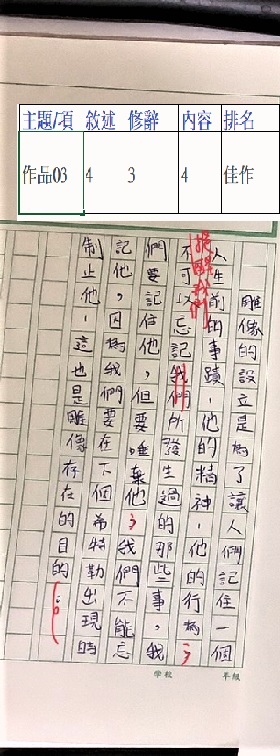 主題/項 敘述 修辭 內容 排名
作品03 4 3 4 佳作
雕像的設立是為了讓人們記住一個
人生前的事蹟,他的精神,他的行為,
提醒我們
不可以忘記我們所發生過的那些事,我
們要記信他,但要唾棄他,我們不能忘
記他,因為我們要在下個希特勒出現時
制止他,這也是雕像存在的目的。
學校 年級